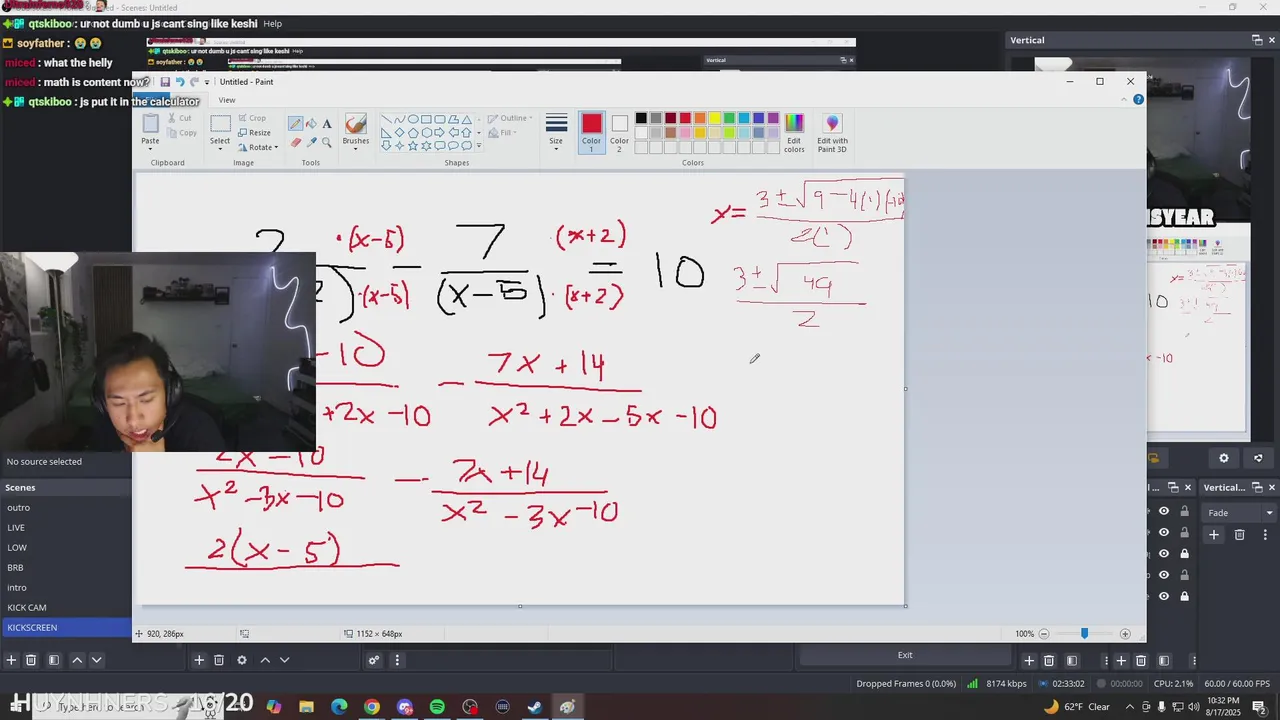 Scenes: Untitled
qtskiboo : ur not dumb u js cant sing like keshi
Help
soyfather :
miced : what the helly
miced : math is content now?
qtskiboo : js put it in the calculator
Vertical
Untitled - Paint
View
Paste
Cut
Copy
Clipboard
Select
Crop
Resize
Rotate
Image
Tools
Brushes
Outline
Fill
Shapes
Size
Color 1
Color 2
Edit colors
Edit with Paint 3D
Colors
2 ·(x-5) 7 ·(x+2)
— =10
·(x-5) (x-5) ·(x+2)
-10 — 7x+14
+2x-10 x²+2x-5x-10
2x-10 — 7x+14
x²-3x-10 x²-3x-10
2(x-5)
x= 3±√9-4(1)(-10)
2(1)
3±√49
2
YEAR
No source selected
Scenes
outro
LIVE
LOW
BRB
intro
KICK CAM
KICKSCREEN
920, 286px
1152 × 648px
100%
Exit
Vertical
Fade
Dropped Frames 0 (0.0%)
8174 kbps
02:33:02
00:00:00
CPU: 2.1%
60.00 / 60.00 FPS
HUYNHNERS
/20
62°F Clear
10:32 PM
8/17/2025